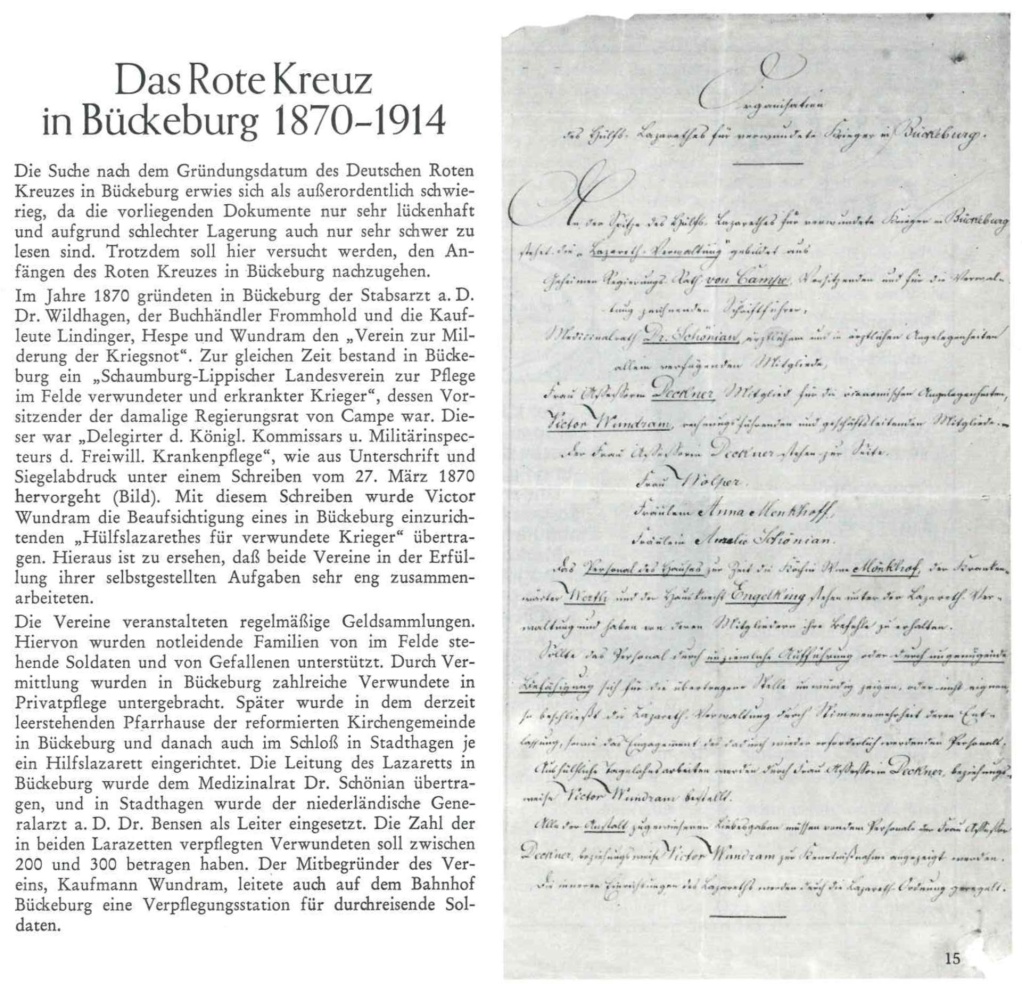 Das Rote Kreuz
in Bückeburg 1870–1914
Die Suche nach dem Gründungsdatum des Deutschen Roten
Kreuzes in Bückeburg erwies sich als außerordentlich schwie-
rieg, da die vorliegenden Dokumente nur sehr lückenhaft
und aufgrund schlechter Lagerung auch nur sehr schwer zu
lesen sind. Trotzdem soll hier versucht werden, den An-
fängen des Roten Kreuzes in Bückeburg nachzugehen.
Im Jahre 1870 gründeten in Bückeburg der Stabsarzt a. D.
Dr. Wildhagen, der Buchhändler Frommhold und die Kauf-
leute Lindinger, Hespe und Wundram den „Verein zur Mil-
derung der Kriegsnot“. Zur gleichen Zeit bestand in Bücke-
burg ein „Schaumburg-Lippischer Landesverein zur Pflege
im Felde verwundeter und erkrankter Krieger“, dessen Vor-
sitzender der damalige Regierungsrat von Campe war. Die-
ser war „Delegirter d. Königl. Kommissars u. Militärinspec-
teurs d. Freiwill. Krankenpflege“, wie aus Unterschrift und
Siegelabdruck unter einem Schreiben vom 27. März 1870
hervorgeht (Bild). Mit diesem Schreiben wurde Victor
Wundram die Beaufsichtigung eines in Bückeburg einzurich-
tenden „Hülfslazarethes für verwundete Krieger“ übertra-
gen. Hieraus ist zu ersehen, daß beide Vereine in der Erfül-
lung ihrer selbstgestellten Aufgaben sehr eng zusammen-
arbeiteten.
Die Vereine veranstalteten regelmäßige Geldsammlungen.
Hiervon wurden notleidende Familien von im Felde ste-
hende Soldaten und von Gefallenen unterstützt. Durch Ver-
mittlung wurden in Bückeburg zahlreiche Verwundete in
Privatpflege untergebracht. Später wurde in dem derzeit
leerstehenden Pfarrhause der reformierten Kirchengemeinde
in Bückeburg und danach auch im Schloß in Stadthagen je
ein Hilfslazarett eingerichtet. Die Leitung des Lazaretts in
Bückeburg wurde dem Medizinalrat Dr. Schönian übertra-
gen, und in Stadthagen wurde der niederländische Gene-
ralarzt a. D. Dr. Bensen als Leiter eingesetzt. Die Zahl der
in beiden Larazetten verpflegten Verwundeten soll zwischen
200 und 300 betragen haben. Der Mitbegründer des Ver-
eins, Kaufmann Wundram, leitete auch auf dem Bahnhof
Bückeburg eine Verpflegungsstation für durchreisende Sol-
daten.
Organisation
des Hülfs-Lazarethes für verwundete Krieger in Bückeburg.
An der Spitze des Hülfs-Lazarethes für verwundete Krieger in Bückeburg
stehet die „Lazareth-Verwaltung“ gebildet aus
Geheimen Regierungs-Rath von Campe, Vorsitzenden und für die Verwal-
tung zeichnenden Schriftführer,
Medicinalrath Dr. Schönian, ärztlichem und in ärztlichen Angelegenheiten
allein verfügenden Mitgliede,
Frau Assessorin Deckner, Mitglied für die oeconomischen Angelegenheiten,
Victor Wundram, rechnungsführenden und geschäftsleitenden Mitgliede.
Der Frau Assessorin Deckner stehen zur Seite:
Frau Wölper.
Fräulein Anna Menkhoff,
Fräulein Amelie Schönian.
Das Personal des Hauses zur Zeit die Köchin Wwe Mönkhof, der Kranken-
wärter Werth und der Hausknecht Engelking stehen unter der Lazareth-Ver-
waltung und haben von deren Mitgliedern ihre Befehle zu erhalten.
Sollte das Personal durch unziemliche Aufführung oder durch ungenügende
Befähigung sich für die übertragene Stelle unwürdig zeigen, oder nicht eignen,
so beschließt die Lazareth-Verwaltung durch Stimmenmehrheit deren Ent-
lassung, sowie das Engagement des dadurch wieder erforderlich werdenden Personals.
Aushülfliche Tagelohnsarbeiten werden durch Frau Assessorin Deckner, beziehungs-
weise Victor Wundram bestellt.
Alle der Anstalt zugewiesenen Liebesgaben müssen von dem Personale der Frau Assessorin
Deckner, beziehungsweise Victor Wundram zur Kenntnißnahme angezeigt werden.
Die inneren Einrichtungen des Lazareths werden durch die Lazareth-Ordnung geregelt.
15